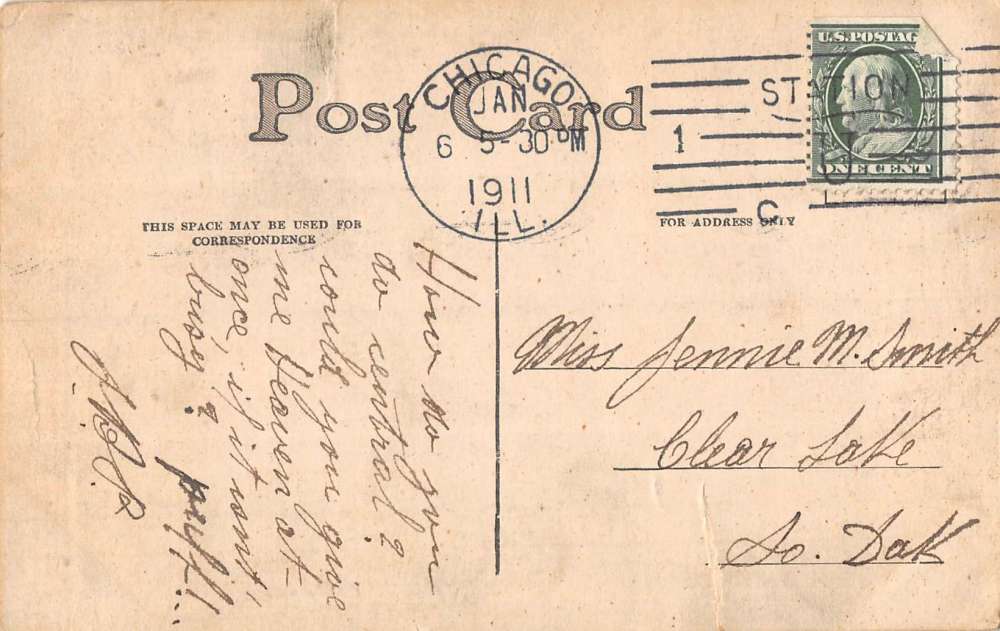 Post Card
CHICAGO
JAN
6 5-30 PM
1911
ILL.
STATION
1
C
U.S. POSTAG
ONE CENT
THIS SPACE MAY BE USED FOR
CORRESPONDENCE
FOR ADDRESS ONLY
How do you
do central?
could you give
me Heaven at
once, if it isnt,
busy?
Miss Jennie M. Smith
Clear Lake
So. Dak